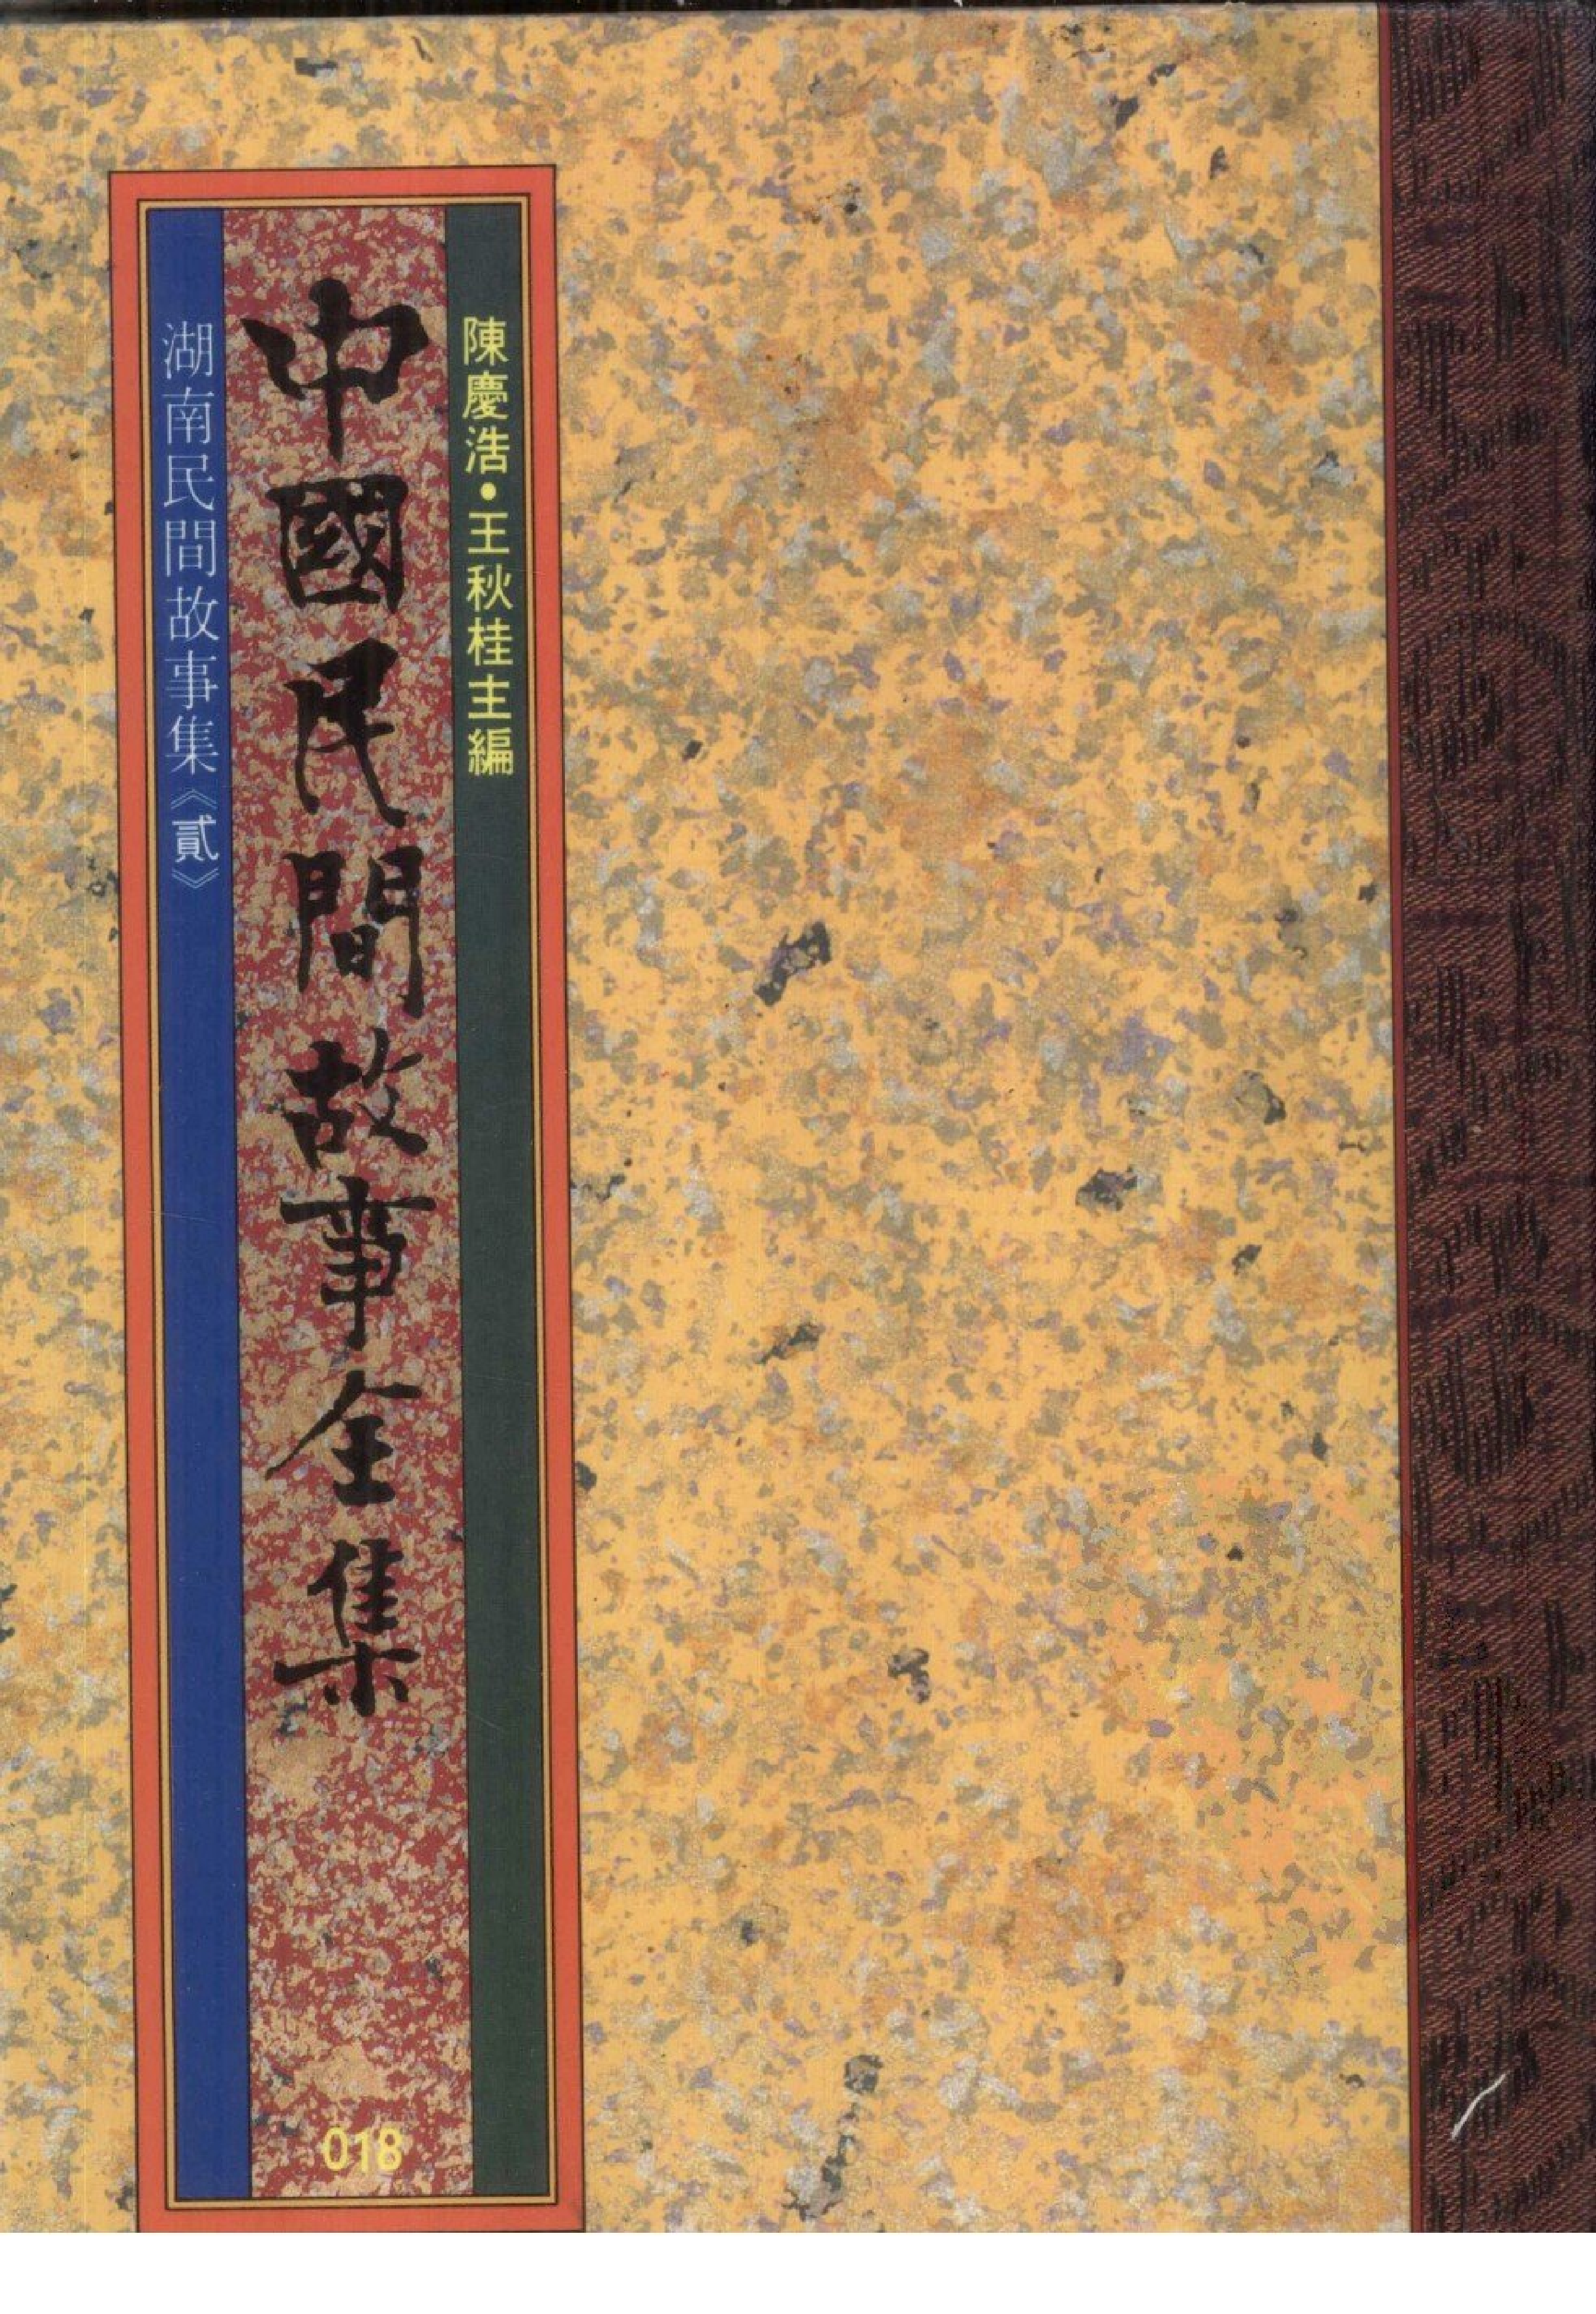 陳慶浩•王秋桂主編
中國民間故事全集
湖南民間故事集《貳》
018